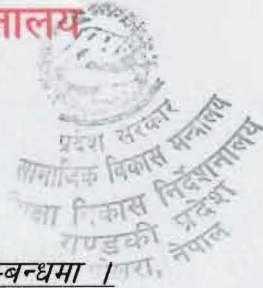 नालय
प्रदेश सरकार
सामाजिक विकास मन्त्रालय
शिक्षा विकास निर्देशनालय
गण्डकी प्रदेश
पोखरा, नेपाल
म्बन्धमा ।